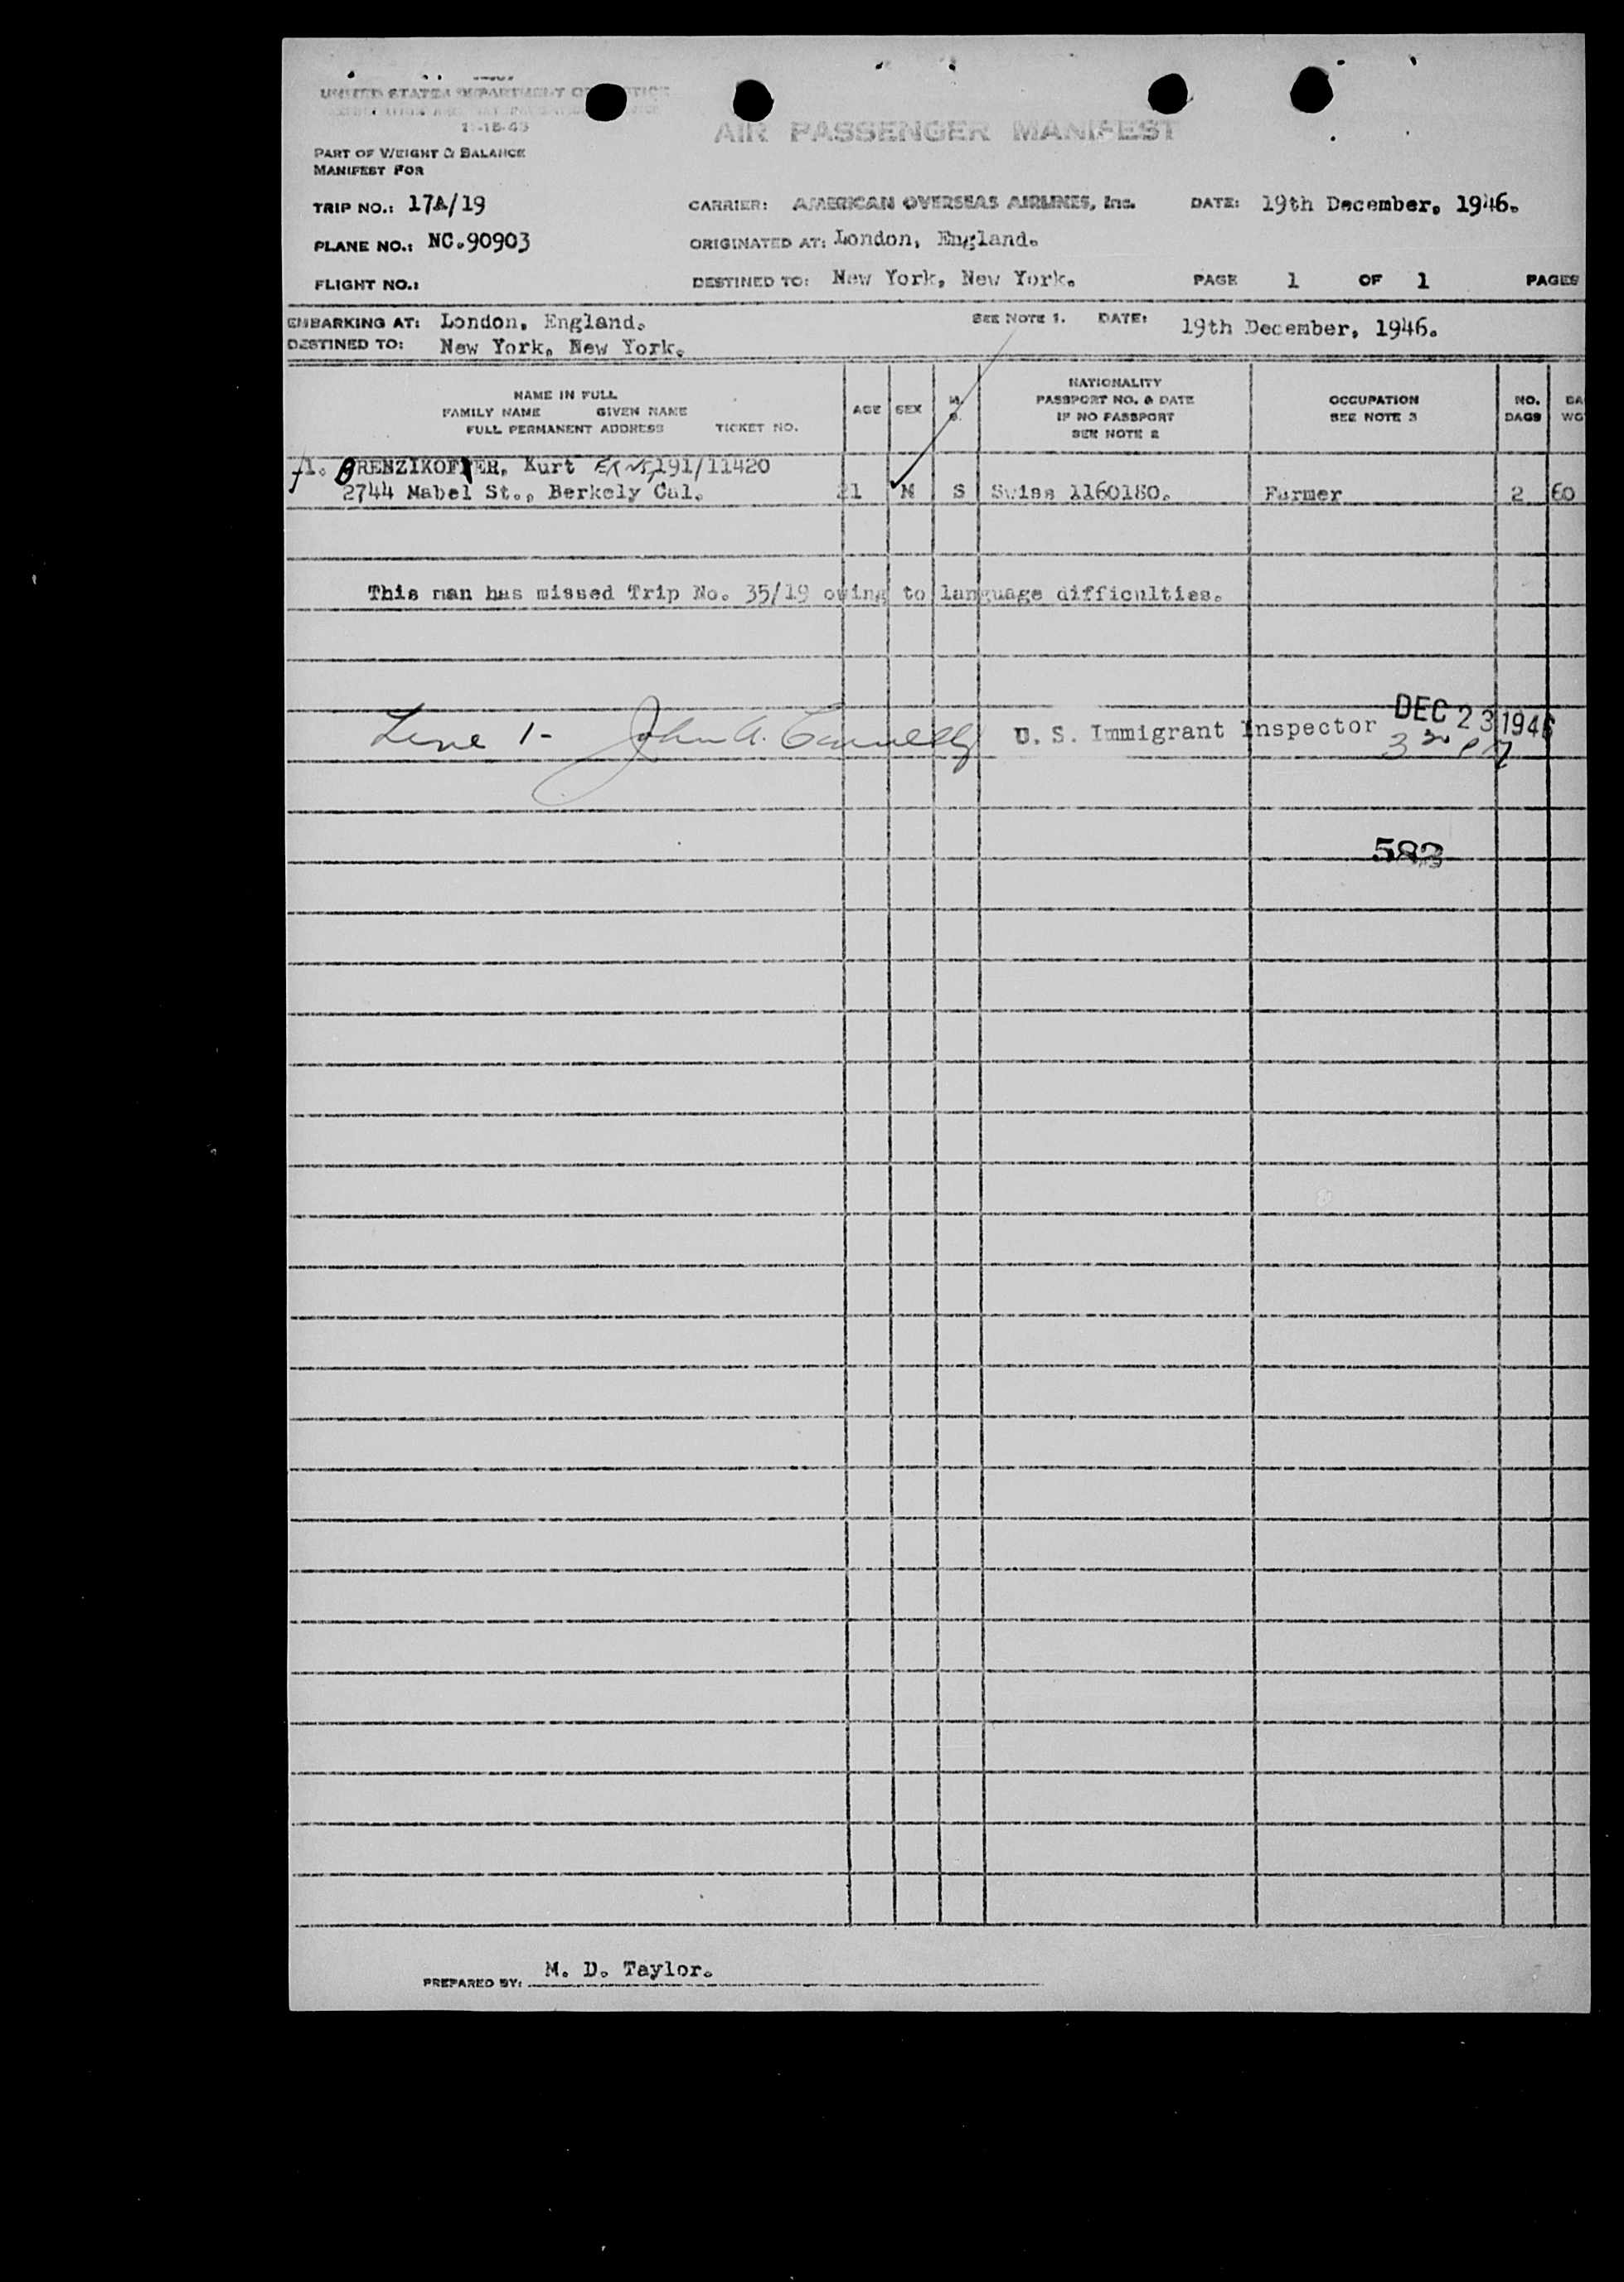 UNITED STATES DEPARTMENT OF JUSTICE
11-15-43
AIR PASSENGER MANIFEST
PART OF WEIGHT & BALANCE
MANIFEST FOR
TRIP NO.: 17A/19 CARRIER: AMERICAN OVERSEAS AIRLINES, Inc. DATE: 19th December, 1946.
PLANE NO.: NC.90903 ORIGINATED AT: London, England.
FLIGHT NO.: DESTINED TO: New York, New York. PAGE 1 OF 1 PAGES
EMBARKING AT: London, England. SEE NOTE 1. DATE: 19th December, 1946.
DESTINED TO: New York, New York.
NAME IN FULL
FAMILY NAME GIVEN NAME
FULL PERMANENT ADDRESS TICKET NO.
AGE SEX M. S.
NATIONALITY
PASSPORT NO. & DATE
IF NO PASSPORT
SEE NOTE 2
OCCUPATION
SEE NOTE 3
NO.
BAGS
BA
WG
1. BRENZIKOFER, Kurt Ernst 191/11420
2744 Mabel St., Berkely Cal. 21 M S Swiss 1160180. Farmer 2 60
This man has missed Trip No. 35/19 owing to language difficulties.
Line 1- John A. Connelly U. S. Immigrant Inspector DEC 23 1946
3 30 PM
582
PREPARED BY: M. D. Taylor.